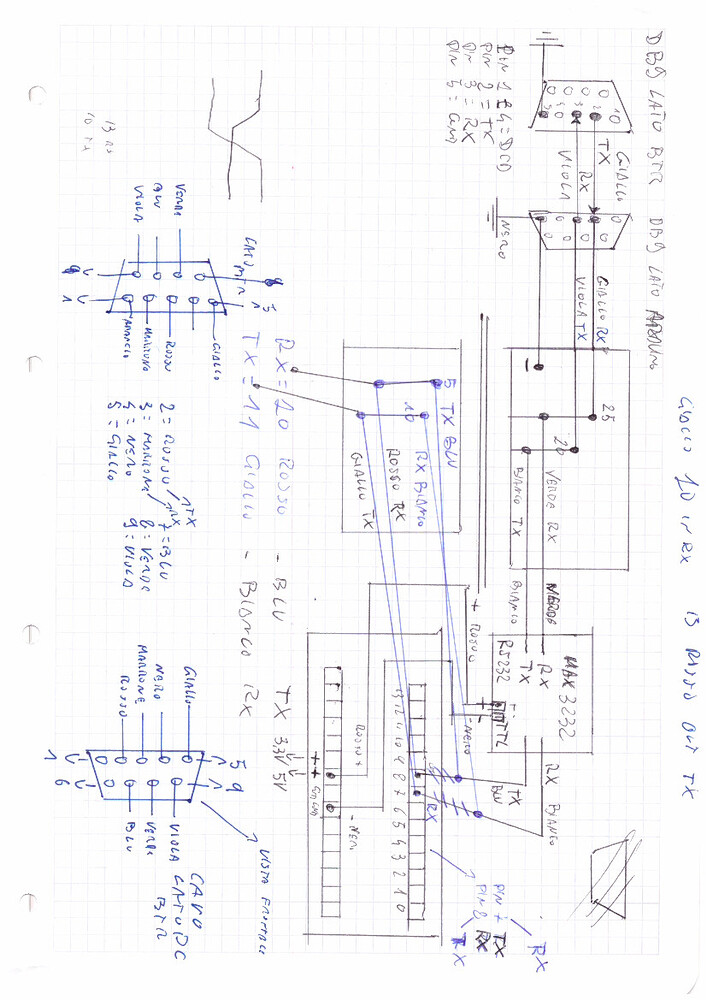 DB9 LATO BTR DB9 LATO ARDUINO
PIN 1 E 4 = DCD
PIN 2 = TX
PIN 3 = RX
PIN 5 = GND
GIALLO
TX
RX
VIOLA
NERO
GIALLO RX
VIOLA TX
25
20
VERDE RX
BIANCO TX
VERDE
BIANCO
MAX 3232
RX
TX
RS232
TTL
RX BIANCO
TX
BLU
+ ROSSO
- NERO
GIALLO 10 IN RX 13 ROSSO OUT TX
5 TX BLU
10 RX BIANCO
ROSSO RX
GIALLO TX
RX = 10 ROSSO - BLU TX
TX = 11 GIALLO - BIANCO RX
3.3V 5V
ROSSO +
- NERO
13 12 11 10 9 8 7 6 5 4 3 2 1 0
RX
PIN 7 TX RX
PIN 8 RX TX
13 RX
10 TX
VERDE
BLU
VIOLA
LATO
GIALLO
ROSSO
MARRONE
9
5
1
2 = ROSSO TX
3 = MARRONE RX
4 = NERO
5 = GIALLO
7 = BLU
8 = VERDE
9 = VIOLA
GIALLO
NERO
MARRONE
ROSSO
1
5
6
9
VIOLA
VERDE
BLU
CAVO
LATO PC
BTR
VISTA FRONTALE